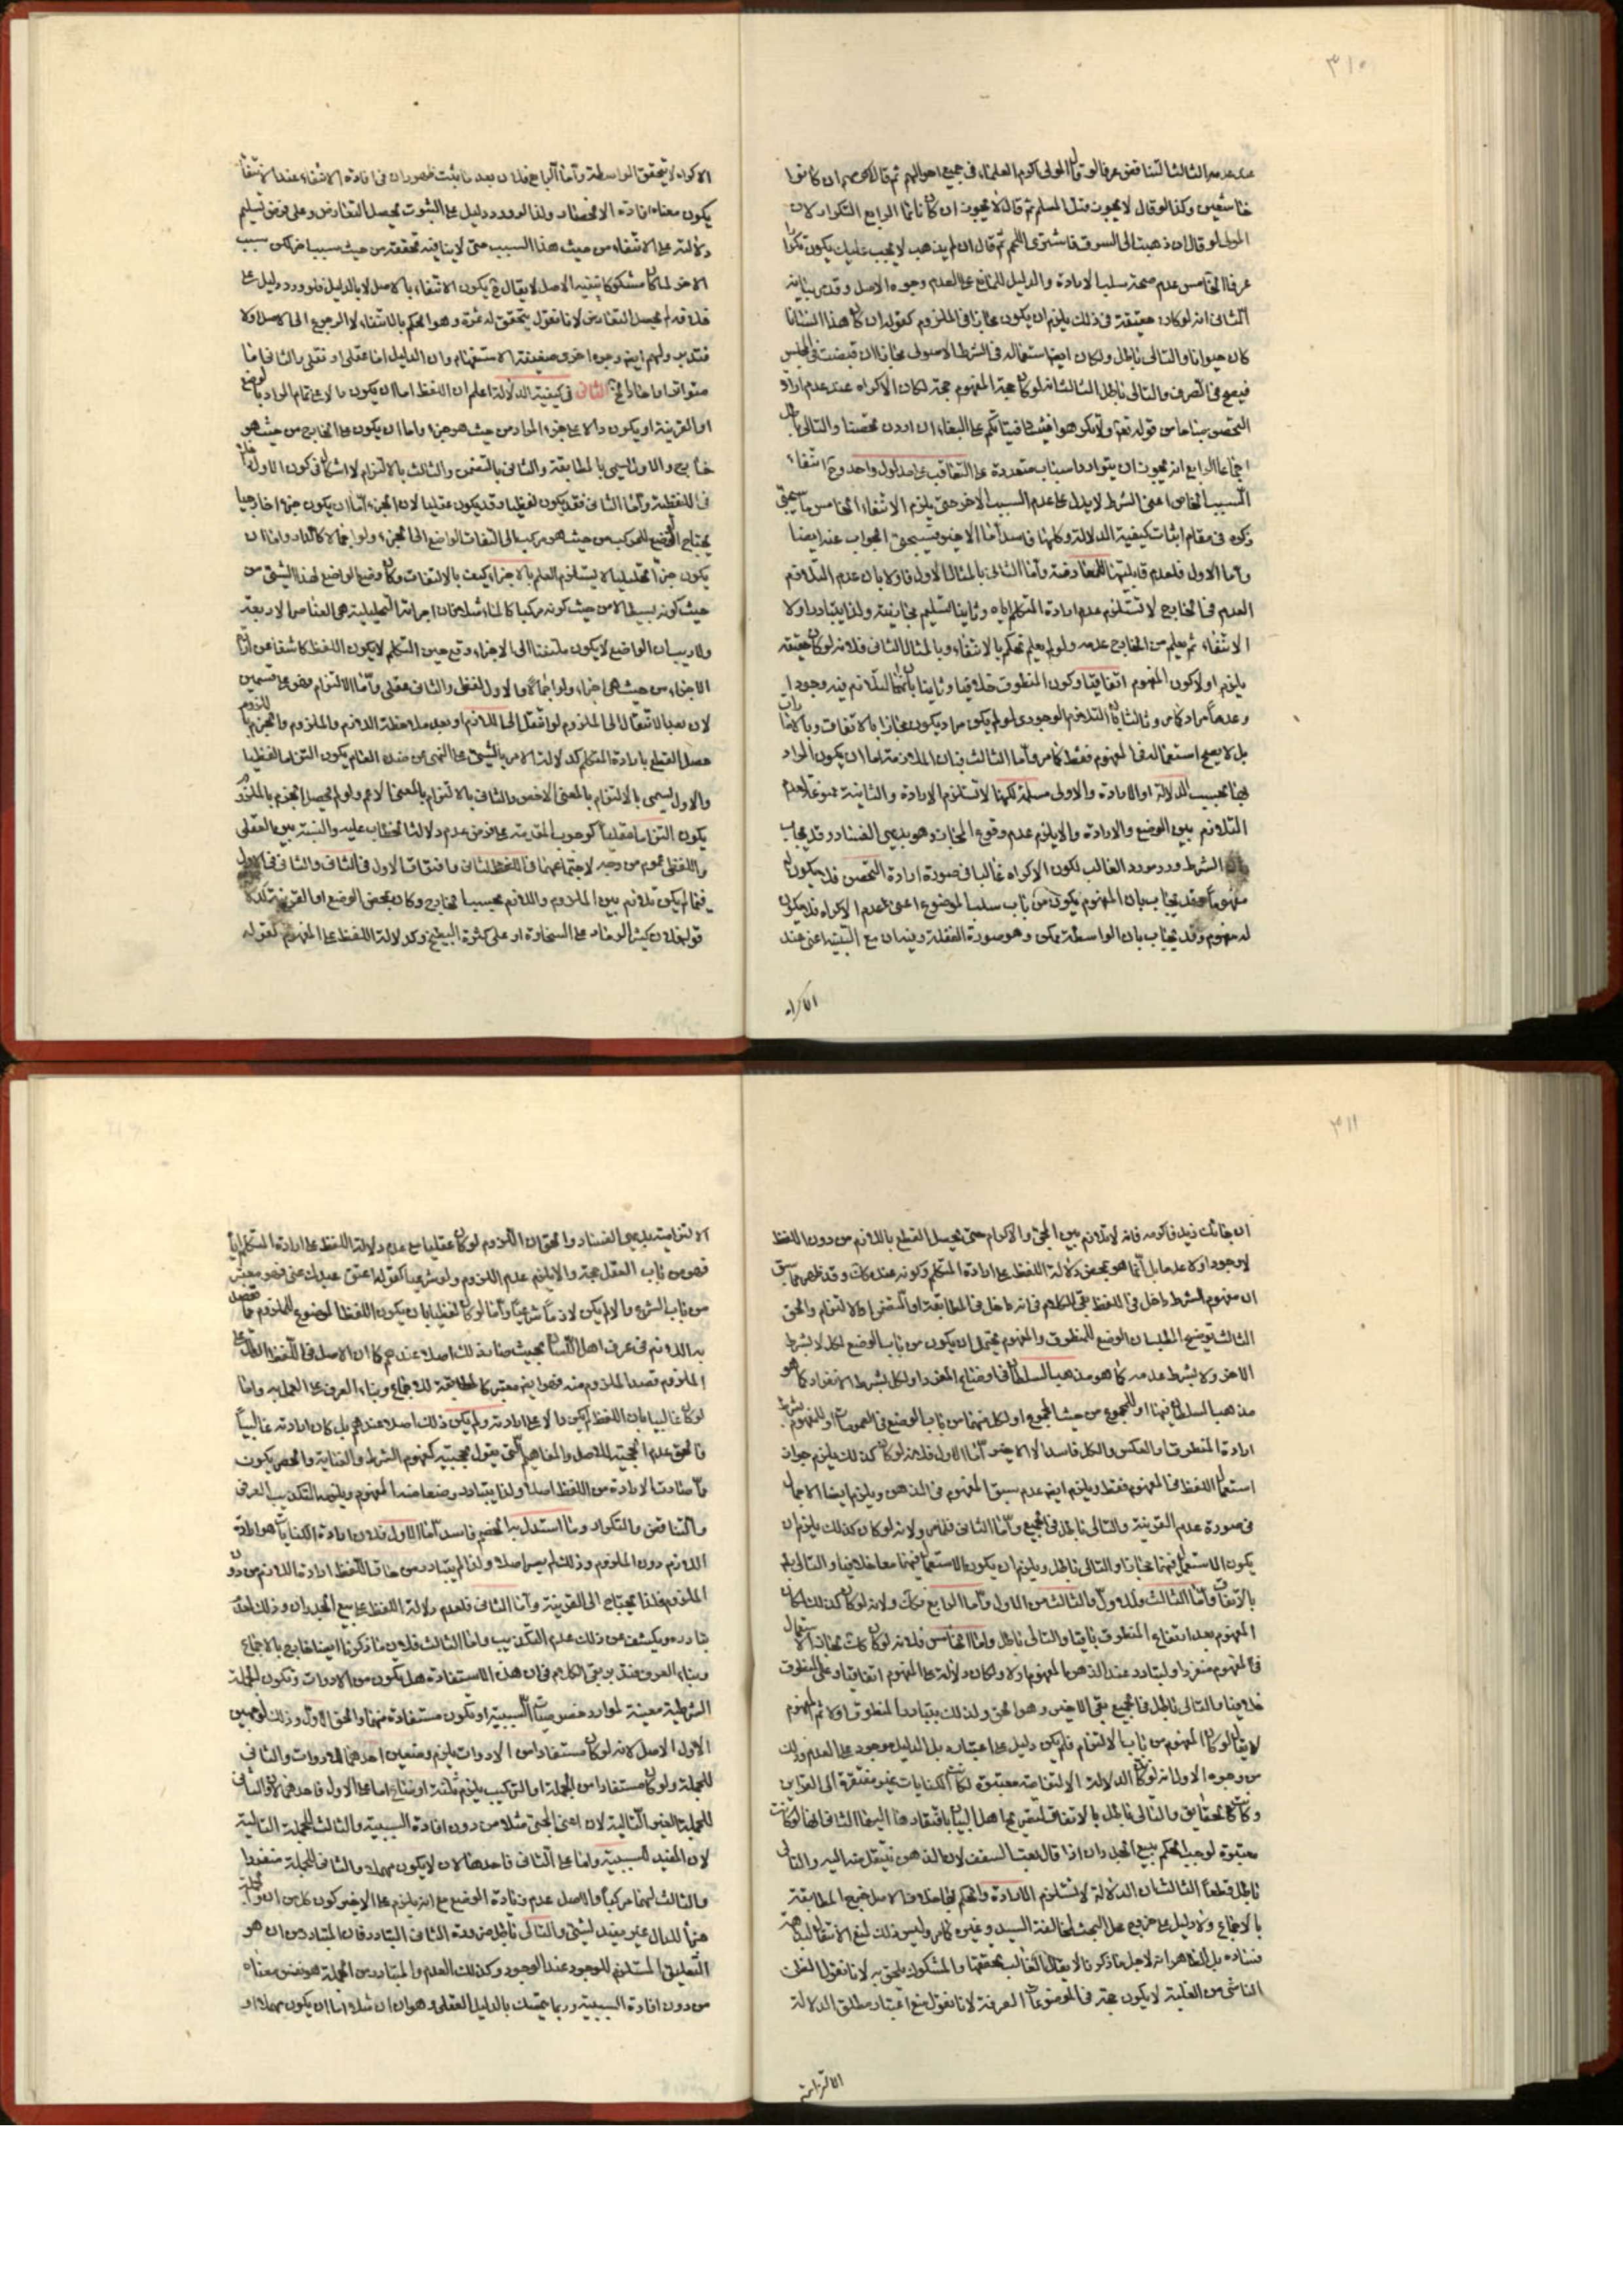 ٣١٠
عند عدمه الثالث التناقض عرفا لو قال المولى اكرم العلماء في جميع احوالهم ثم قال اكرمهم ان كانوا
خاشعين وكذا لو قال لا يجوز قتل المسلم ثم قال لا يجوز ان كان نائما الرابع التكرار لان
المولى لو قال ان ذهبت الى السوق فاشتر اللحم ثم قال ان لم يذهب لا يجب عليك يكون تكرارا
عرفا الخامس عدم صحة سلب الارادة والدليل للمانع على العدم وجوه الاصل وقد مر بيانه
الثاني انه لو كان حقيقة في ذلك يلزم ان يكون مجازا في الملزوم كقوله ان كان هذا انسانا
كان حيوانا والتالي باطل ولكان ايضا استعماله في الشرط الاصولي مجازا ان قبضت في المجلس
فيصح في الصرف والتالي باطل الثالث انه لو كان حجة المفهوم حجة لكان الاكراه عند عدم ارادة
التحصن مباحا من قوله تعالى ولا تكرهوا فتياتكم على البغاء ان اردن تحصنا والتالي باطل
اجماعا الرابع انه يجوز ان يتوارد اسباب متعددة على التعاقب على مدلول واحد وح انتفاء
السبب الخاص اعني الشرط لا يدل على عدم السبب الاخر حتى يلزم الانتفاء الخامس ما سيجئ
ذكره في مقام اثبات كيفية الدلالة وكلها فاسد اما الاخير فسيجئ الجواب عنه ايضا
واما الاول فلعدم قابليتها للمعارضة واما الثاني بالمثال الاول فاولا بان عدم التلازم
العدم في الخارج لا تستلزم عدم ارادة المتكلم اياه وثانيا التسليم مجازيته ولذا يتبادر اولا
الانتفاء ثم يعلم من الخارج عدمه ولو لم يعلم تحكم بالانتفاء وبالمثال الثاني فلانه لو كان حقيقة
يلزم اولا كون المفهوم اتفاقيا وكون المنطوق خلافيا وثانيا بانهما التلازم فيه وجودا
وعدما مراد كما مر وثالثا بان التلازم الوجودي لو لم يكن مراد يكون مجازا بالاتفاق وبالاضراب
بل لا يصح استعماله في المفهوم فقط كما مر واما الثالث فبان الملازمة اما ان يكون المراد
بها بحسب الدلالة او الارادة والاولى مسلمة لكنها لا تستلزم الارادة والثانية ممنوعة لعدم
التلازم بين الوضع والارادة والا يلزم عدم وقوع المجاز وهو بديهي الفساد وقد يجاب
بان الشرط ورد مورد الغالب لكون الاكراه غالبا في صورة ارادة التحصن فلا يكون له
مفهوما وقد يجاب بان المفهوم يكون من باب سلب الموضوع اعني عدم الاكراه فلا يكون
له مفهوم وقد يجاب بان الواسطة ممكن وهو صورة الغفلة وبنيان مع التنبيه اعني عند
الاكراه
الاكراه لا يتحقق الواسطة واما الرابع فلان بعد ما يثبت ظهور ان في افادة الانتفاء عند الانتفاء
يكون معناه افادة الانحصار ولذا لو ورد دليل على الثبوت يحصل التعارض وعلى فرض تسليم
دلالته على الانتفاء من حيث هذا السبب حتى لا ينافيه تحققه من حيث سبب اخر لكن سبب
الاخر لما كان مشكوكا ينفيه الاصل لا يقال ح يكون الانتفاء بالاصل لا بالدليل فلو ورد دليل على
خلافه لم يحصل التعارض لانا نقول يتحقق له ثمرة وهو الحكم بالانتفاء لا الرجوع الى الاصل اولا
فتدبر ولهم ايضا وجوه اخرى ضعيفة الاستفهام وان الدليل اما عقلي او نقلي والثاني اما
متواتر او احاد الخ الثاني في كيفية الدلالة اعلم ان اللفظ اما ان يكون دالا على تمام المراد بالوضع
او القرينة او يكون دالا على جزء المراد من حيث هو جزء واما ان يكون على الخارج من حيث هو
خارج والاول يسمى بالمطابقة والثاني بالتضمن والثالث بالالتزام لا اشكال في كون الاول داخلا
في اللفظية واما الثاني فقد يكون لفظيا وقد يكون عقليا لان الجزء اما ان يكون جزءا خارجيا
يحتاج الوضع للمركب من حيث هو مركب الى التفات الواضع الى الجزء ولو اجمالا كالدار واما ان
يكون جزءا تحليليا لا يستلزم العلم بالاجزاء كيف بالالتفات وكان وضع الواضع لهذا الشئ من
حيث كونه بسيطا لا من حيث كونه مركبا كالماء مثلا فان اجزائه التحليلية هي العناصر الاربعة
ولا ريب ان الواضع لا يكون ملتفتا الى الاجزاء وقع حين التكلم لا يكون اللفظ كاشفا عن ارادة
الاجزاء من حيث هي اجزاء ولو اجمالا والاول لفظي والثاني عقلي واما الالتزام فهو على قسمين
لان بعد الانتقال الى الملزوم لو انتقل الى اللازم او بعد ملاحظة اللازم والملزوم والجزم باللزوم
حصل القطع بارادة المتكلم كدلالة الامر بالشئ على النهي عن ضد العام يكون التزاما لفظيا
والاول يسمى بالالتزام بالمعنى الاخص والثاني بالالتزام بالمعنى الاعم ولو لم يحصل الجزم بالملزوم
يكون التزاما عقليا كوجوب المقدمة على فرض عدم دلالة الخطاب عليه والنسبة بين العقلي
واللفظي عموم من وجه لاجتماعهما في اللفظ الثاني وافتراق الاول في الثاني والثاني في الاول
فيما لم يكن تلازم بين الملزوم واللازم بحسب الخارج وكان بمحض الوضع او القرينة كما
قولك فلان كثير الرماد على السخاوة او على كثرة الطبخ وكدلالة اللفظ على المفهوم كقوله
٣١١
ان جائك زيد فاكرمه فانه لا تلازم بين المجئ والاكرام حتى يحصل القطع باللازم من دون اللفظ
لا وجودا ولا عدما بل انما هو بمحض دلالة اللفظ على ارادة المتكلم وكونه عنده كك وقد ظهر مما سبق
ان مفهوم الشرط داخل في اللفظ بقي الكلام في انه داخل في المطابقة او التضمن او الالتزام والحق
الثالث توضيح المطلب ان الوضع للمنطوق والمفهوم يحتمل ان يكون من باب الوضع لكل لا بشرط
الاخر ولا بشرط عدمه كما هو مذهب السلطان في اوضاع المفرد او لكل بشرط الانفراد كما هو
مذهب السلطان فيها او للمجموع من حيث المجموع او لكل منهما من باب الوضع في العمومات او للمفهوم بشرط
ارادة المنطوق او العكس والكل فاسد الا الاخير اما الاول فلانه لو كان كذلك يلزم جواز
استعمال اللفظ في المفهوم فقط ويلزم ايضا عدم سبق المفهوم في الذهن ويلزم ايضا الاجمال
في صورة عدم القرينة والتالي باطل في الجميع واما الثاني فلما مر ولانه لو كان كذلك يلزم ان
يكون الاستعمال فيهما مجازا والتالي باطل ويلزم ان يكون الاستعمال فيهما معا خلافيا والتالي بط
بالاتفاق واما الثالث فللاول والثالث من الاول واما الرابع فكك ولانه لو كان كذلك لكان
المفهوم بعد ارتفاع المنطوق باقيا والتالي باطل واما الخامس فلانه لو كان كك لجاز استعمال
في المفهوم منفردا ولتبادر عند الذهن المفهوم اولا ولكان دلالة على المفهوم اتفاقيا وعلى المنطوق
خلافيا والتالي باطل في الجميع بقي الاخير وهو الحق ولذلك يتبادر المنطوق اولا ثم المفهوم
لا يقال لو كان المفهوم من باب الالتزام فلم يكن دليل على اعتباره بل الدليل موجود على العدم وذلك
من وجوه الاول انه لو كان الدلالة الالتزامية معتبرة لكانت الكنايات غير مفتقرة الى القرائن
وكانت كالحقايق والتالي باطل بالاتفاق لتصريح اهل البيان بافتقارها اليها الثاني انها لو كانت
معتبرة لوجب الحكم ببيع الجدران اذا قال بعت السقف لان الذهن ينتقل منه اليه والتالي
باطل قطعا الثالث ان الدلالة لا تستلزم الارادة والحكم بها خلاف الاصل خرج المطابقة
بالاجماع ولا دليل على خروج محل البحث لمخالفة السيد وغيره كما مر وليس ذلك لمنع الانتقال لبداهة
فساده بل الظاهر انه لاجل ما ذكرنا لا يقال الغالب تحققها والمشكوك يلحق به لانا نقول الظن
الناشئ من الغلبة لا يكون حجة في الموضوعات الصرفة لانا نقول منع اعتبار مطلق الدلالة
الالتزامية
الالتزامية بديهي الفساد والحق ان اللزوم لو كان عقليا مع عدم دلالة اللفظ على ارادة المتكلم اياه
فهو من باب العقل حجة والا يلزم عدم اللزوم ولو شرعيا كقوله اعتق عبدك عني فهو معتبر
من باب الشرع والا لم يكن لازما شرعيا واما لو كان لفظيا بان يكون اللفظ الموضوع للملزوم مما تفصل
به اللازم في عرف اهل اللسان بحيث صار ذلك اصلا عندهم كما ان الاصل في اللفظ الدال على
الملزوم قصد الملزوم منه فهو ايضا معتبر كالمطابقة للاجماع وبناء العرف على العمل به واما
لو كان غالبيا بان اللفظ لم يكن دالا على ارادته ولم يكن ذلك اصلا عندهم بل كان ارادته غالبيا
فالحق عدم الحجية للاصل والمفاهيم التي يقول بحجيته كمفهوم الشرط والغاية والحصر يكون
مما صار الارادة من اللفظ اصلا ولذا يتبادر وضعا منه المفهوم ويلزمه التكذيب العرفي
والتناقض والتكرار وما استدل به الخصم فاسد اما الاول فلان ارادة الكنايات هو ارادة
اللازم دون الملزوم وذلك لم يصر اصلا ولذا لم يتبادر من حاق اللفظ ارادة اللازم من دون
الملزوم فلذا يحتاج الى القرينة واما الثاني فلعدم دلالة اللفظ على بيع الجدران وذلك احد
تبادره ويكشف عن ذلك عدم التكذيب واما الثالث فلان ما ذكرنا ايضا خارج بالاجماع
وبناء العرف فتدبر بقي الكلام في ان هذه الاستفادة هل يكون من الادوات وتكون الجملة
الشرطية معينة لموارد خصوصيات السببية او تكون مستفادة منهما والحق الاول وذلك لوجهين
الاول الاصل لانه لو كان مستفادا من الادوات يلزم وضعين احدهما للادوات والثاني
للجملة ولو كان مستفادا من الجملة او التركيب يلزم ثلثة اوضاع اما على الاول فاحدهما لان والثاني
للجملة الغير التالية لان اعني المجئ مثلا من دون افادة السببية والثالث للجملة التالية
لان المفيد للسببية واما على الثاني فاحدها لان لا يكون مهملا والثاني للجملة منفردا
والثالث لهما مركبا والاصل عدم زيادة الوضع مع انه يلزم على الاخير كون كل من ان والجملة
جزءا للدال غير مفيد لشئ والتالي باطل ضرورة الثاني التبادر فان المتبادر من ان هو
التعليق المستلزم للوجود عند الوجود وكذلك العدم والمتبادر من الجملة هو نفس معناه
من دون افادة السببية وربما يتمسك بالدليل العقلي وهو ان ان مثلا اما ان يكون مهملا او